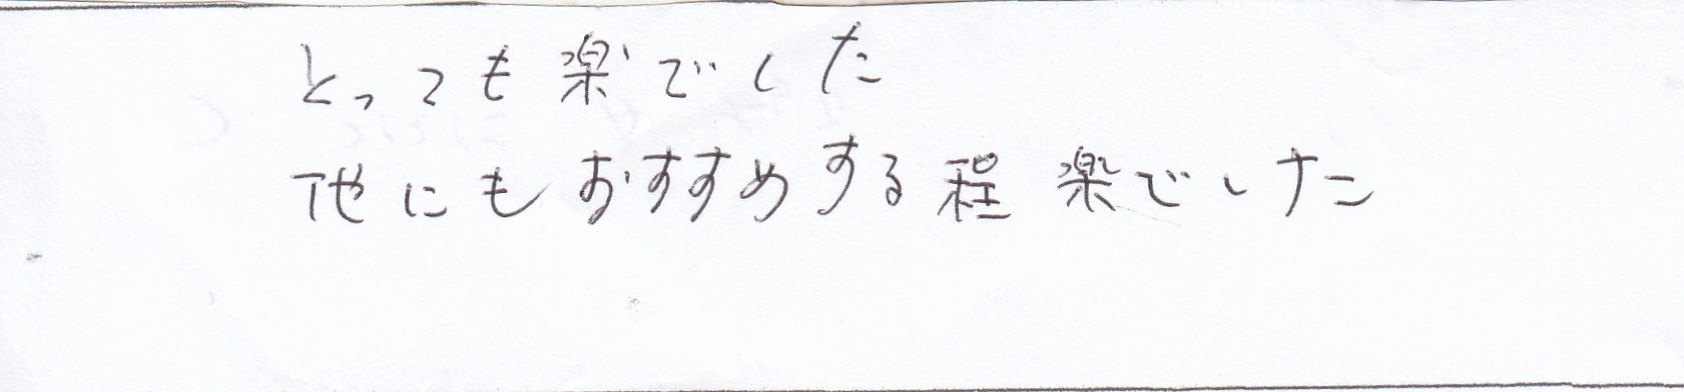 とっても楽でした
他にもおすすめする程楽でした